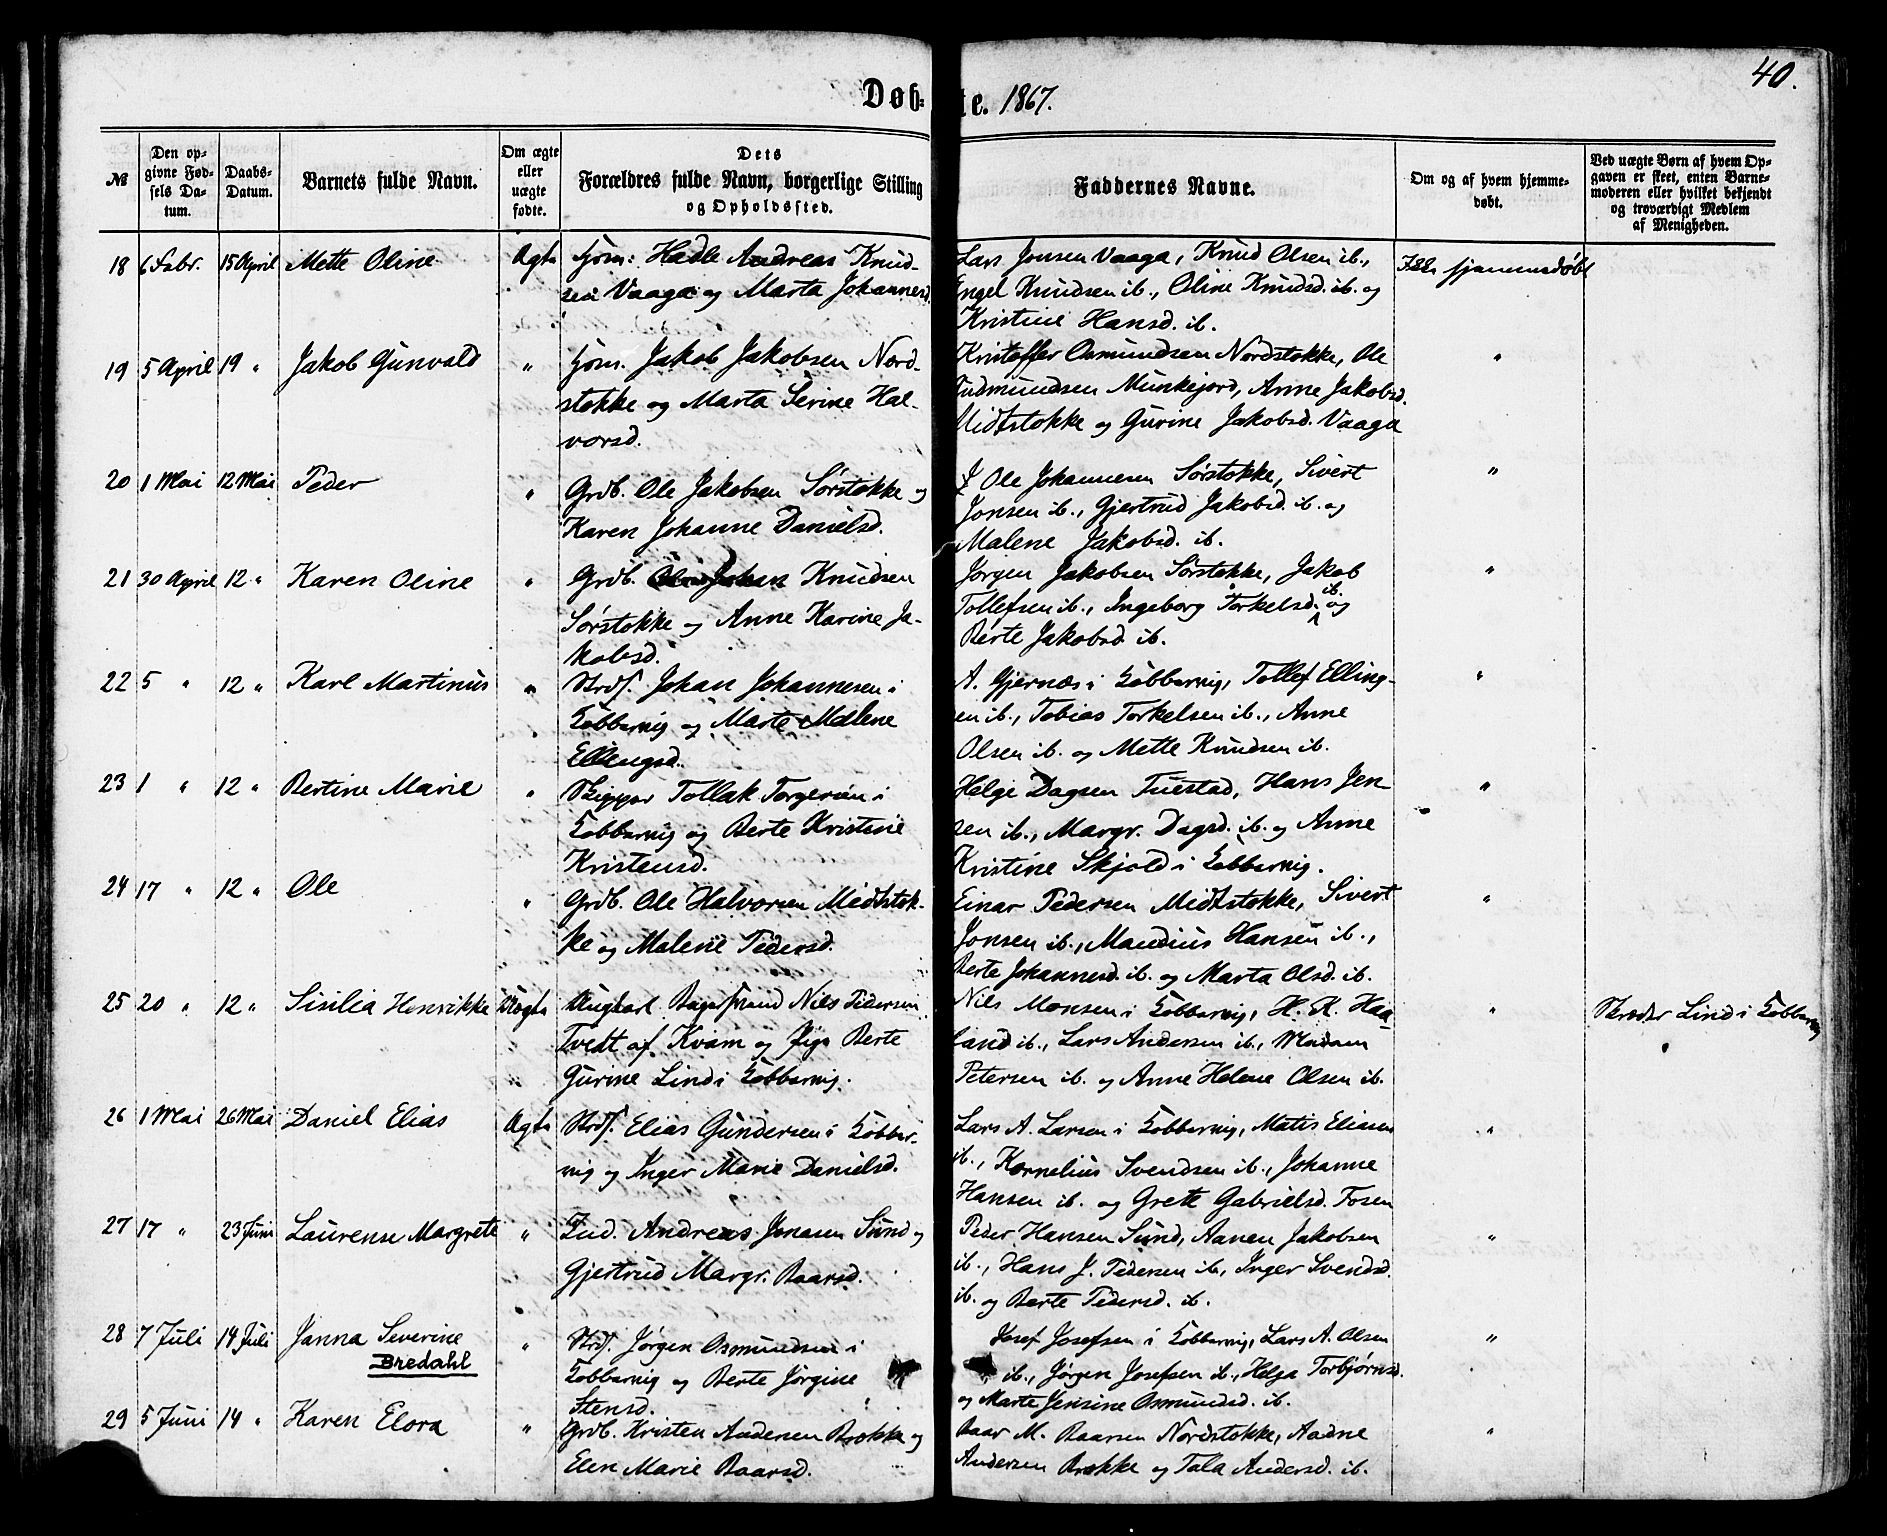 40.
Døb-te. 1867.
№
Den opgivne Fødsels Datum.
Daabs-Datum.
Barnets fulde Navn.
Om ægte eller uægte fødte.
Dets Forældres fulde Navn, borgerlige Stilling og Opholdssted.
Faddernes Navne.
Om og af hvem hjemmedøbt.
Ved uægte Børn af hvem Opgaven er skeet, enten Barnemoderen eller hvilket bekjendt og troværdigt Medlem af Menigheden.
18 6 Febr. 15 April Mette Oline Ægte Hadle Andreas Knud-
sen Vaaga og Marta Johannesd.
Lars Jonsen Vaaga, Knud Olsen ib.,
Engel Knudsen ib., Oline Knudsd. ib. og
Kristine Hansd. ib.
Ikke hjemmedøbt
19 5 April 19 " Jakob Gunvald " Jakob Jakobsen Nord-
stokke og Marta Serine Hal-
vorsd.
Kristoffer Osmundsen Nordstokke, Ole
Gudmundsen Munkejord, Anne Jakobsd.
Midtstokke og Gurine Jakobsd. Vaaga
"
20 1 Mai 12 Mai Peder " Grdb. Ole Jakobsen Sørstokke og
Karen Johanne Danielsd.
Ole Johannesen Sørstokke, Sivert
Jonsen ib., Gjertrud Jakobsd. ib. og
Malene Jakobsd. ib.
"
21 30 April 12 " Karen Oline " Grdb. Johan Knudsen
Sørstokke og Anne Karine Ja-
kobsd.
Jørgen Jakobsen Sørstokke, Jakob
Tollefsen ib., Ingeborg Torkelsd. ib. og
Berte Jakobsd. ib.
"
22 5 " 12 " Karl Martinus " Strds. Johan Johannesen i
Kobbervig og Marte Malene
Ellingsd.
A. Gjernæs i Kobbervig, Tollef Elling-
sen ib., Tobias Torkelsen ib., Anne
Olsen ib. og Mette Knudsen ib.
"
23 1 " 12 " Bertine Marie " Skipper Tollak Torgersen i
Kobbervig og Berte Kristine
Kristensd.
Helge Dagsen Tuestad, Hans Jen-
sen ib., Margr. Dagsd. ib. og Anne
Kristine Skjold i Kobbervig.
"
24 17 " 12 " Ole " Grdb. Ole Halvorsen Midtstok-
ke og Malene Pedersd.
Einar Pedersen Midtstokke, Sivert
Jonsen ib., Mandius Hansen ib.,
Berte Johannesd. ib. og Marta Olsd. ib.
"
25 20 " 12 " Sisilia Henrikke Uægte Ungkarl Nils Pedersen
Tvedt af Kvam og Pige Berte
Gurine Lind i Kobbervig.
Nils Monsen i Kobbervig, H. K. Haa-
land ib., Lars Andersen ib., Madam
Petersen ib. og Anne Helene Olsen ib.
"
Skræder Lind i Kobbervig
26 1 Mai 26 Mai Daniel Elias Ægte Strds. Elias Gundersen i Kobber-
vig og Inger Marie Danielsd.
Lars A. Larsen i Kobbervig, Matis Eliasen
ib., Kornelius Svendsen ib., Johanne
Hansen ib. og Grete Gabrielsd. Fosen
"
27 17 " 23 Juni Laurense Margrete " Ind. Andreas Jonasen Sund og
Gjertrud Margr. Baarsd.
Peder Hansen Sund, Aanen Jakobsen
ib., Hans J. Pedersen ib., Inger Svendsd.
ib. og Berte Pedersd. ib.
"
28 7 Juli 14 Juli Janna Severine " Strds. Jørgen Osmundsen i
Bredahl
Kobbervig og Berte Jørgine
Stensd.
Josef Josefsen i Kobbervig, Lars A. Olsen
ib., Jørgen Josefsen ib., Helga Torbjørnsd.
og Marte Jensine Osmundsd. ib.
"
29 5 Juni 14 " Karen Elora " Grdb. Kristen Andersen Brekke og
Elen Marie Baarsd.
Baar M. Baarsen Nordstokke, Aadne
Andersen Brekke og Tala Andersd. ib.
"